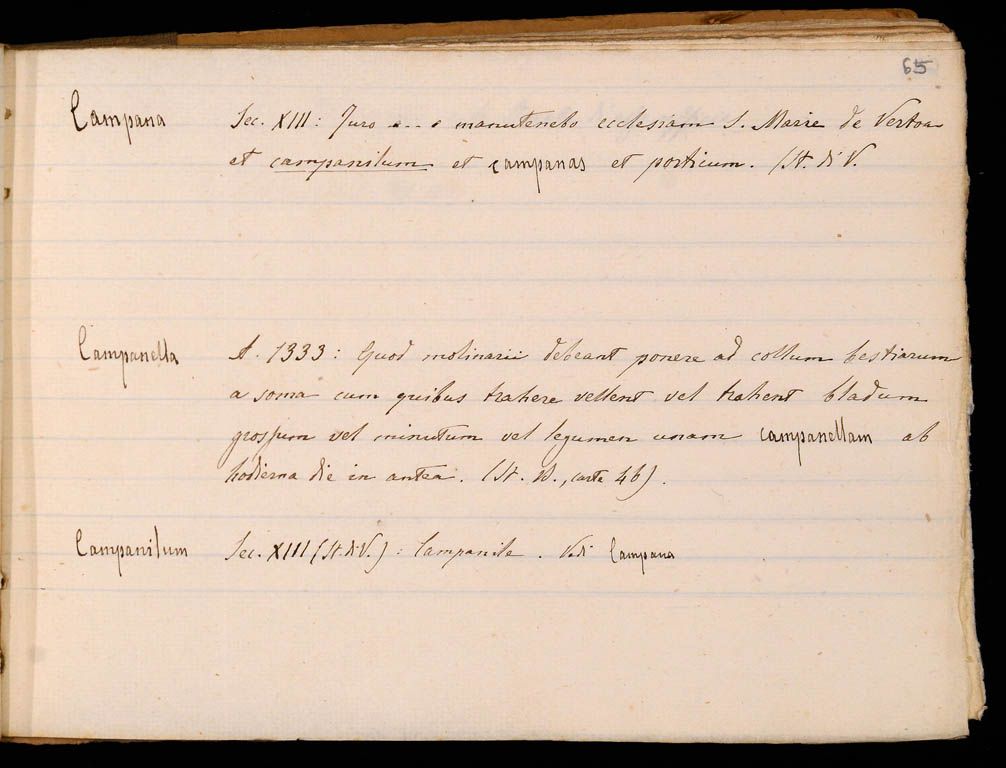 65
Campana Sec. XIII: Juro ... e manutenebo ecclesiam S. Marie de Vertoa
et campanilum et campanas et porticum. (St. di V.
Campanella A. 1333: Quod molinarii debeant ponere ad collum bestiarum
a soma cum quibus trahere vellent vel trahent bladum
grossum vel minutum vel legumen unam campanellam ab
hodierna die in antea. (St. B., carta 46).
Campanilum Sec. XIII (St. di V.): Campanile. Vedi Campana